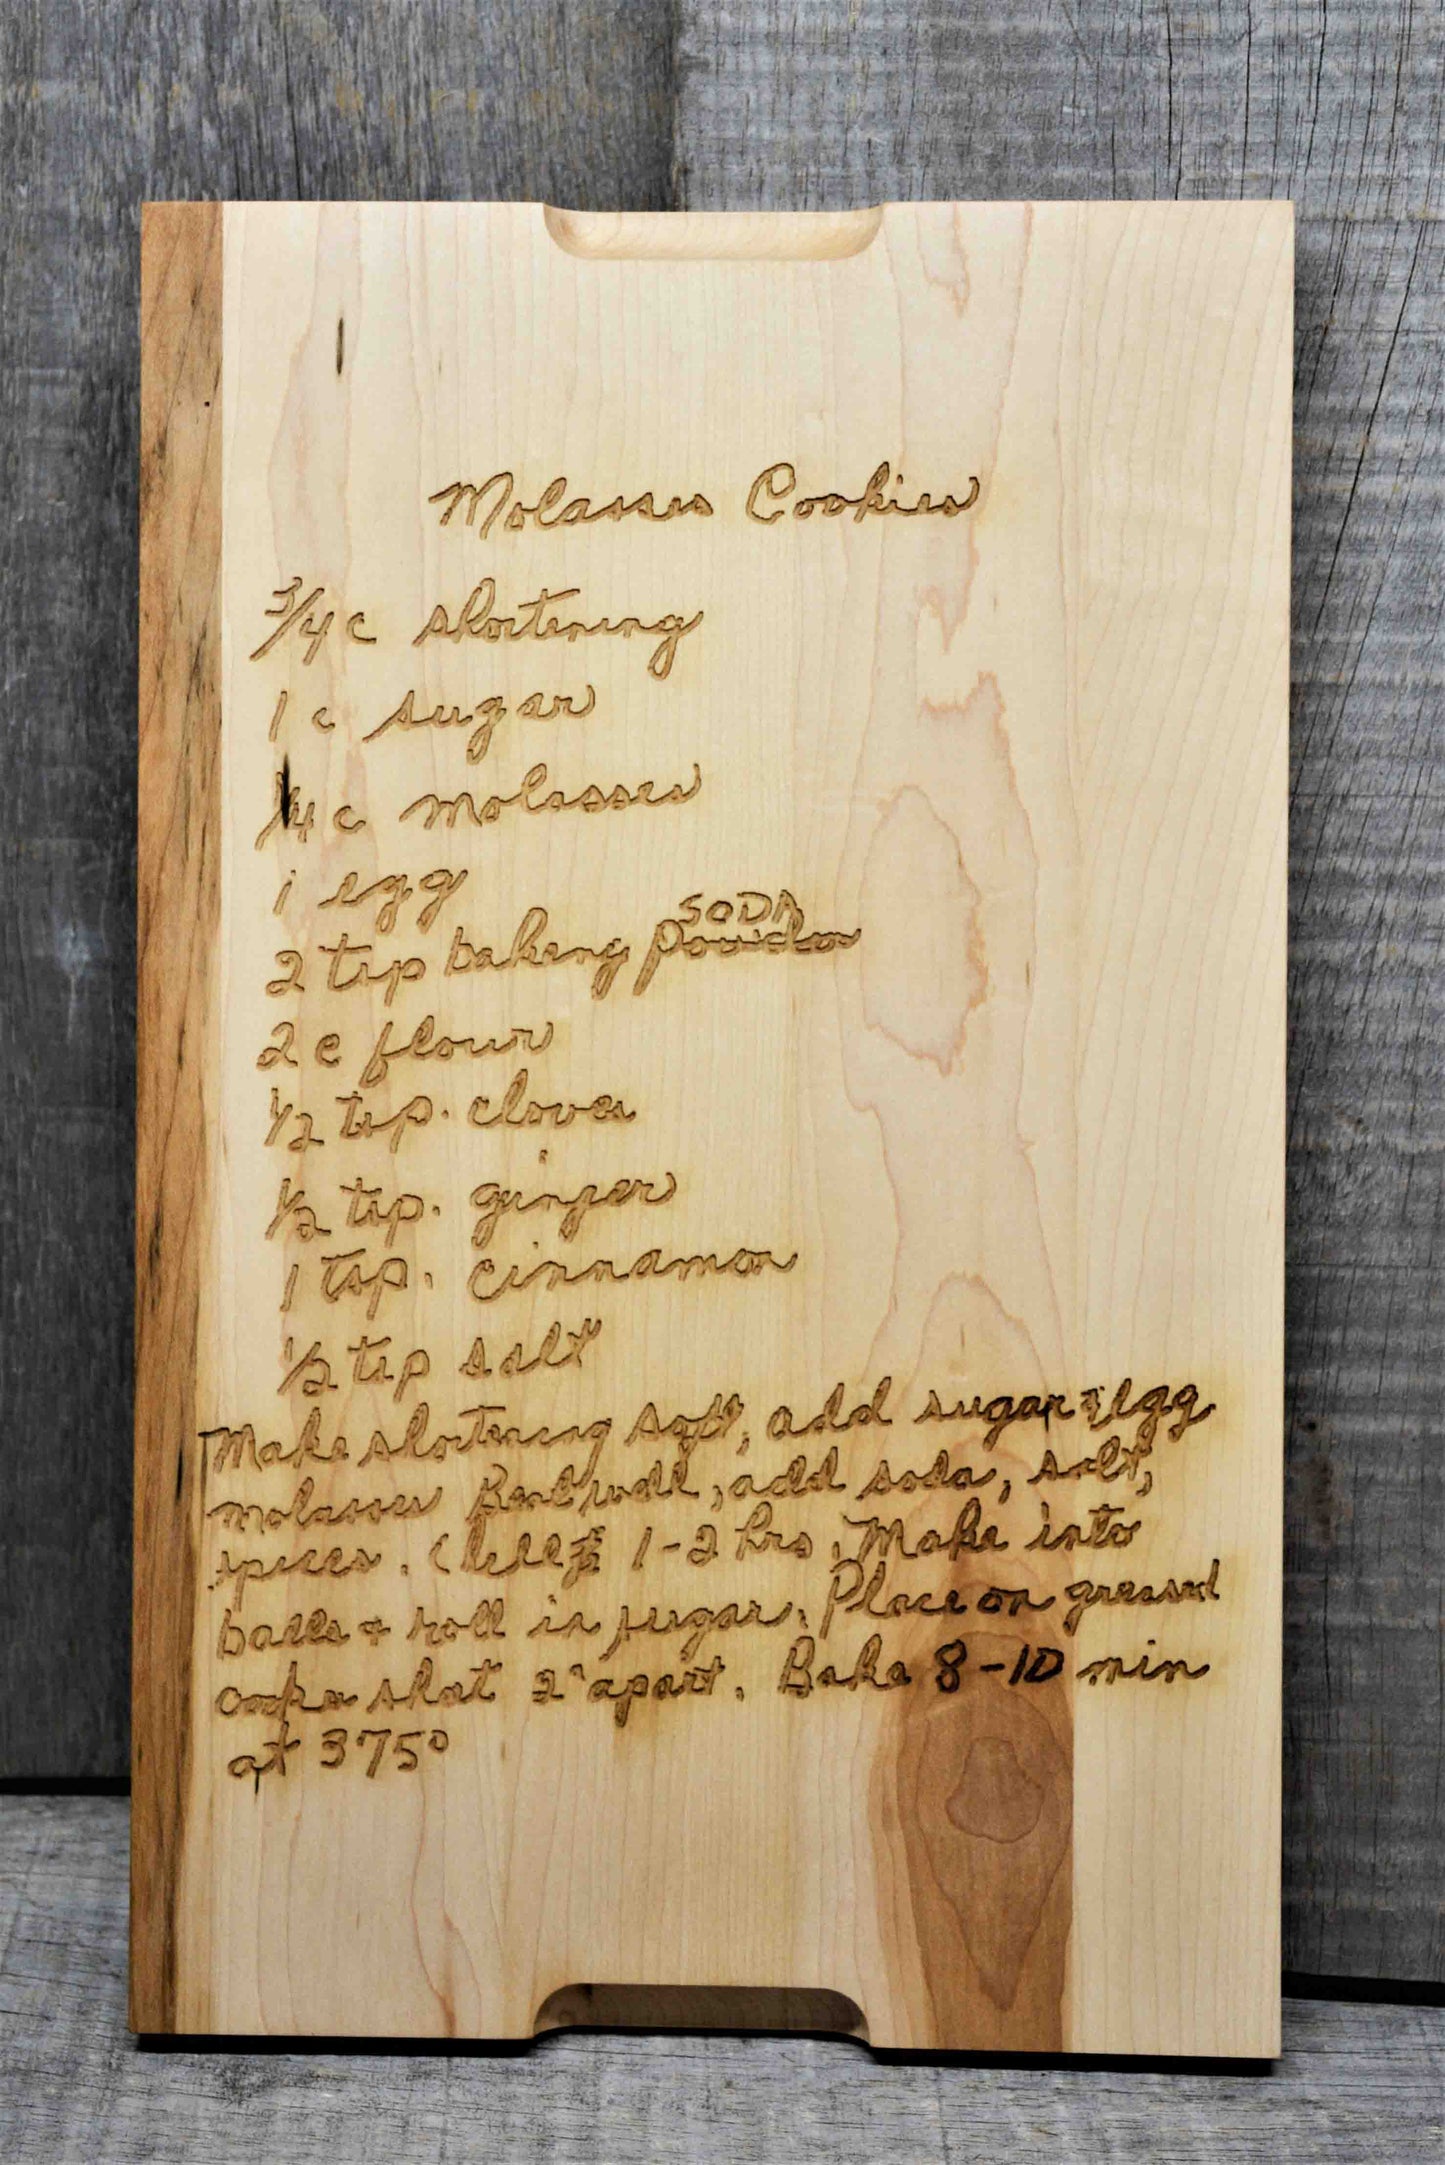 Molasses Cookies
3/4 c shortening
1 c sugar
1/4 c molasses
1 egg
SODA
2 tsp baking powder
2 c flour
1/2 tsp. cloves
1/2 tsp. ginger
1 tsp. cinnamon
1/2 tsp salt
Make shortening soft, add sugar egg
molasses Beat well, add soda, salt,
spices. Chill 1-2 hrs. Make into
balls + roll in sugar. Place on greased
cookie sheet 2" apart. Bake 8-10 min
at 375°